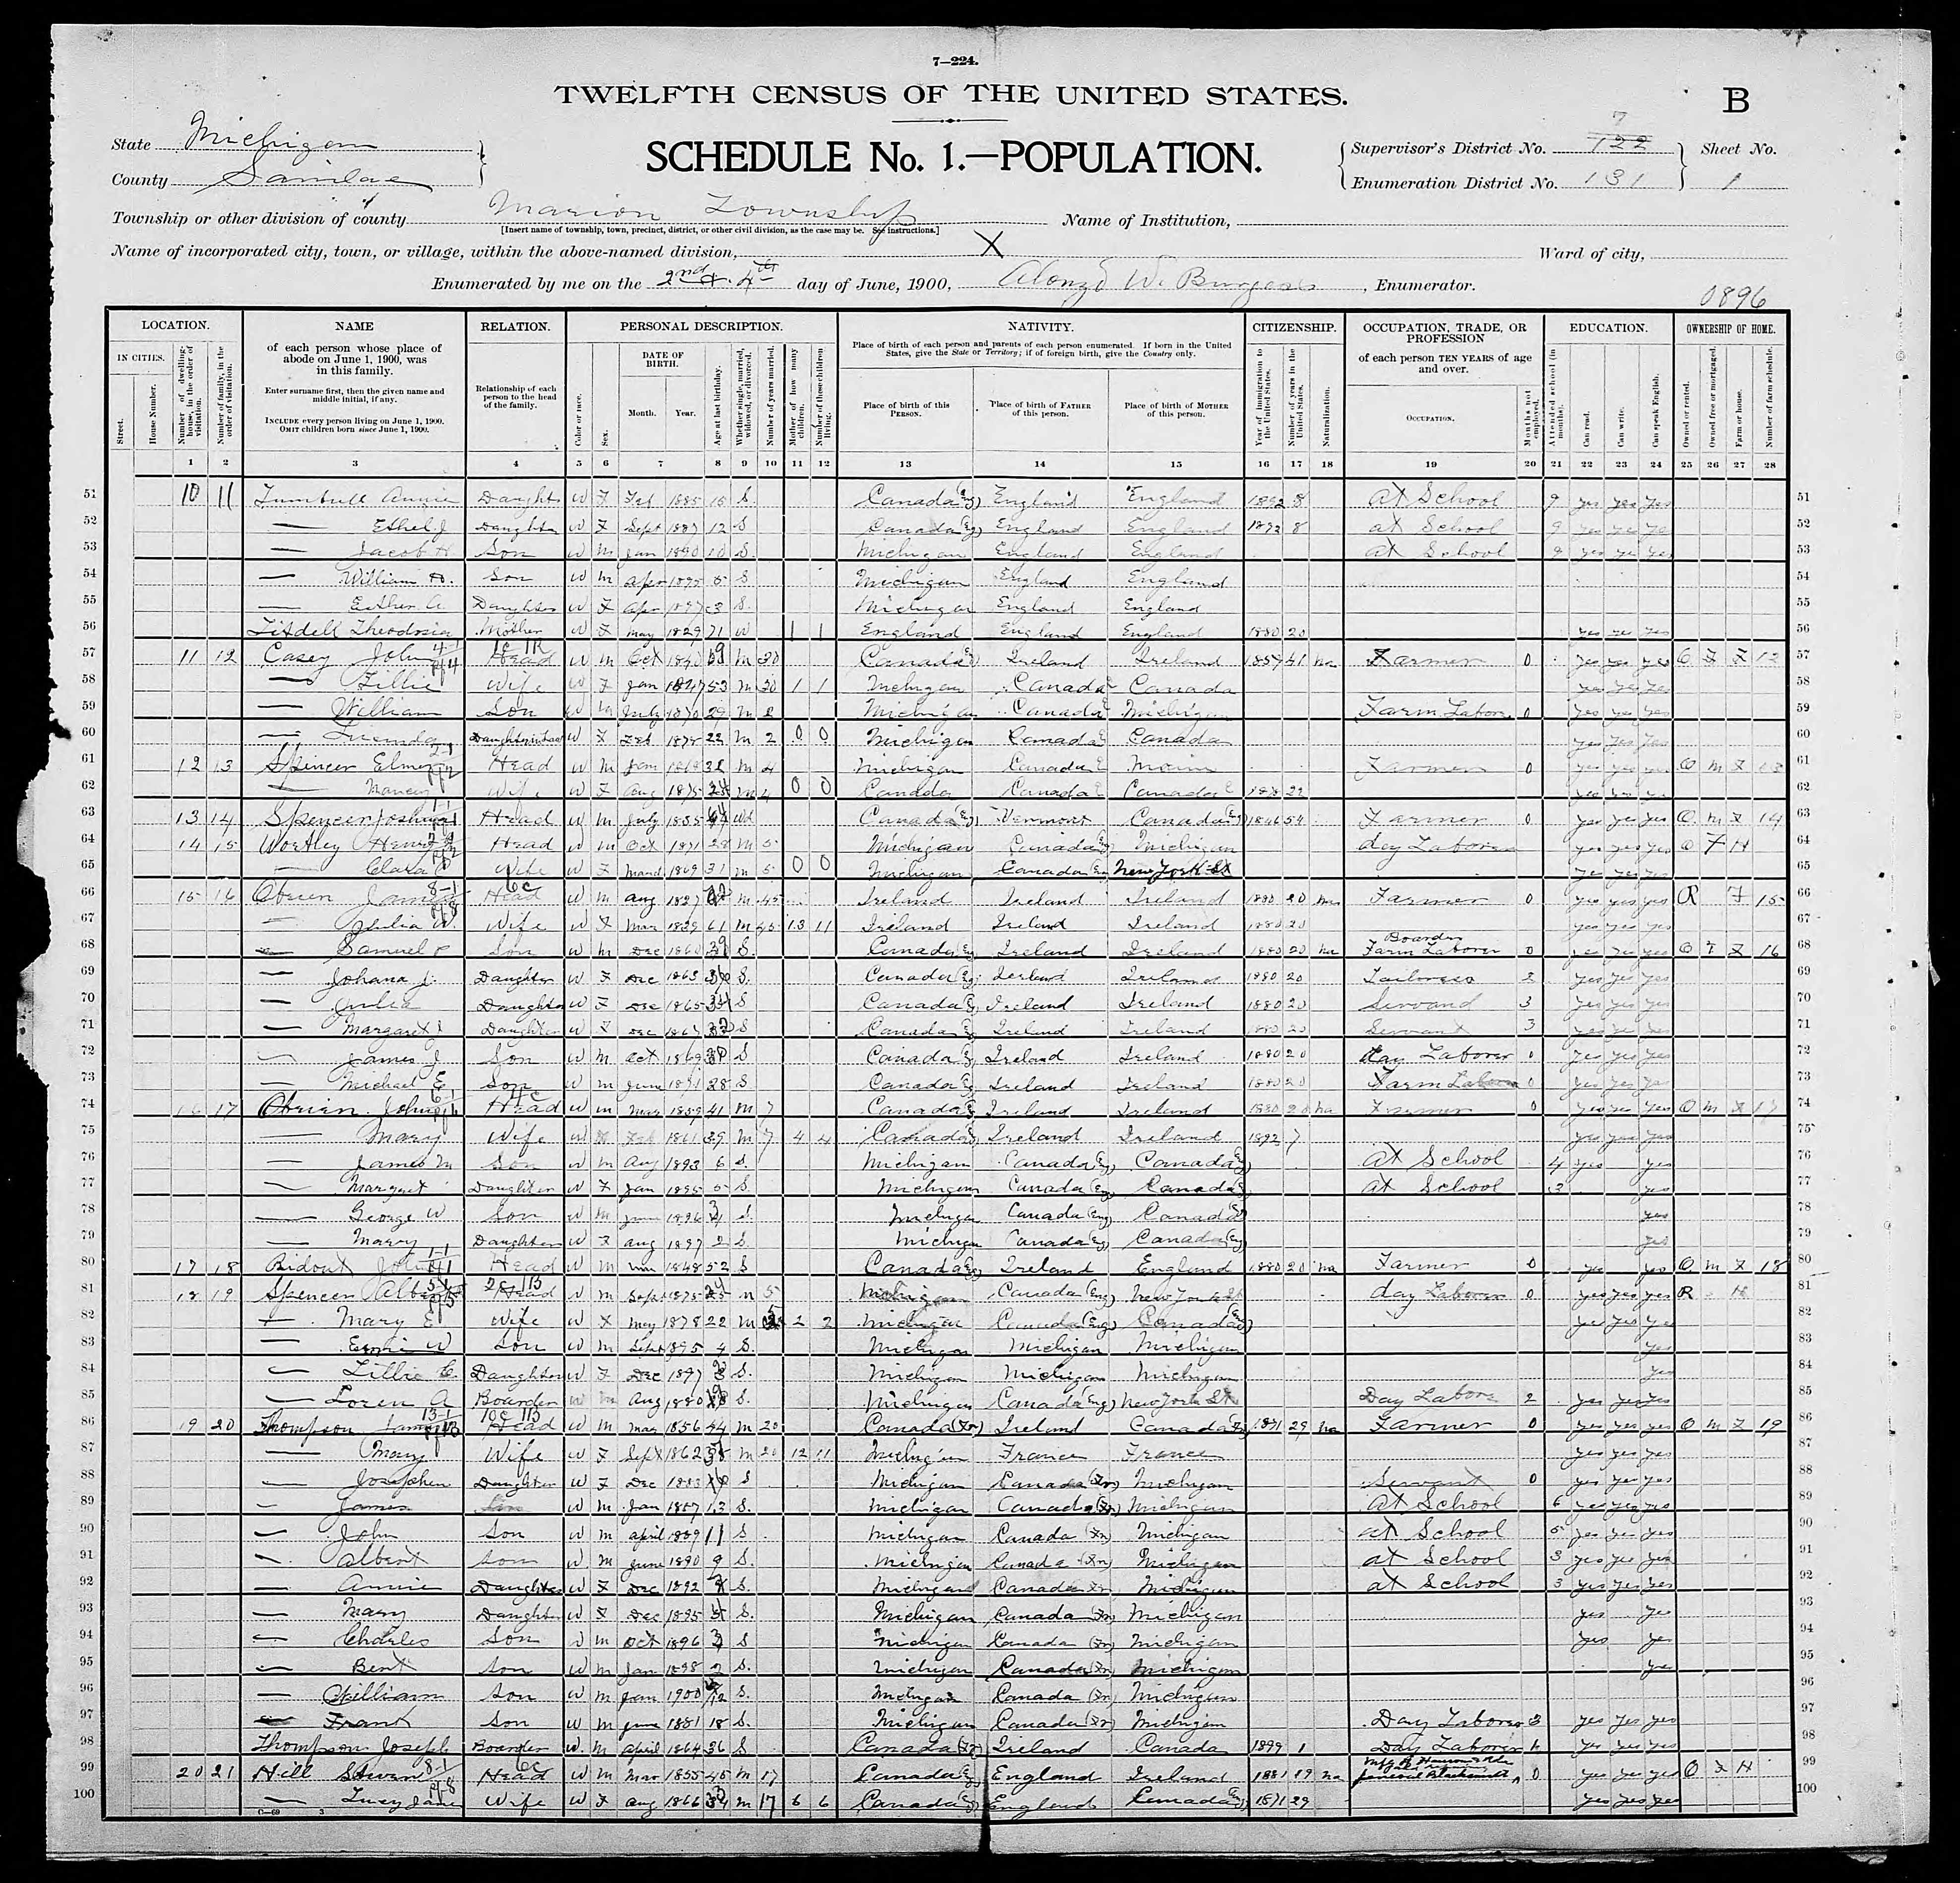 7—224.
TWELFTH CENSUS OF THE UNITED STATES.
B
State Michigan
County Sanilac
SCHEDULE No. 1.—POPULATION.
Supervisor's District No. 122 7
Enumeration District No. 131
Sheet No. 1
Township or other division of county Marion Township
[Insert name of township, town, precinct, district, or other civil division, as the case may be. See instructions.]
Name of Institution,
Name of incorporated city, town, or village, within the above-named division, X
Ward of city,
Enumerated by me on the 2nd & 4th day of June, 1900, Alonzo W. Burgess, Enumerator.
0896
LOCATION. NAME RELATION. PERSONAL DESCRIPTION. NATIVITY. CITIZENSHIP. OCCUPATION, TRADE, OR PROFESSION EDUCATION. OWNERSHIP OF HOME.
IN CITIES. Street. House Number. Number of dwelling-house, in the order of visitation. Number of family, in the order of visitation.
of each person whose place of abode on June 1, 1900, was in this family.
Enter surname first, then the given name and middle initial, if any.
INCLUDE every person living on June 1, 1900. OMIT children born since June 1, 1900.
Relationship of each person to the head of the family.
Color or race. Sex. DATE OF BIRTH. Month. Year. Age at last birthday. Whether single, married, widowed, or divorced. Number of years married. Mother of how many children. Number of these children living.
Place of birth of each person and parents of each person enumerated. If born in the United States, give the State or Territory; if of foreign birth, give the Country only.
Place of birth of this PERSON. Place of birth of FATHER of this person. Place of birth of MOTHER of this person.
Year of immigration to the United States. Number of years in the United States. Naturalization.
of each person TEN YEARS of age and over.
OCCUPATION. Months not employed.
Attended school (in months). Can read. Can write. Can speak English.
Owned or rented. Owned free or mortgaged. Farm or house. Number of farm schedule.
1 2 3 4 5 6 7 8 9 10 11 12 13 14 15 16 17 18 19 20 21 22 23 24 25 26 27 28
51 10 11 Turnbull Annie Daughter W F Feb 1885 15 S Canada (Eng) England England 1892 8 At School 9 yes yes yes 51
52 — Ethel J Daughter W F Sept 1887 12 S Canada (Eng) England England 1892 8 at School 9 yes yes yes 52
53 — Jacob H Son W M Jan 1890 10 S. Michigan England England at School 9 yes yes yes 53
54 — William H. Son W M Apr 1895 5 S Michigan England England 54
55 — Esther A Daughter W F Apr 1897 3 S. Michigan England England 55
56 Theodosia Mother W F May 1829 71 W 1 1 England England England 1880 20 yes yes yes 56
57 11 12 Casey John Head W M Oct 1840 59 M 30 Canada Ireland Ireland 1859 41 Na Farmer 0 yes yes yes O F F 12 57
58 — Tillie Wife W F Jan 1847 53 M 30 1 1 Michigan Canada Canada yes yes yes 58
59 — William Son W M July 1870 29 M 2 Michigan Canada Michigan Farm Labor 0 yes yes yes 59
60 — Daughterinlaw W F Feb 1878 22 M 2 0 0 Michigan Canada Canada yes yes yes 60
61 12 13 Spencer Elmer Head W M Jan 1868 32 M 4 Michigan Canada E Farmer 0 yes yes yes O M F 13 61
62 — Nancy Wife W F Aug 1875 24 M 4 0 0 Canada Canada E Canada E 1878 22 yes yes yes 62
63 13 14 Spencer Joshua Head W M July 1835 64 Wd Canada (Eng) Vermont Canada (Eng) 1846 54 Farmer 0 yes yes yes O M F 14 63
64 14 15 Wortley Henry Head W M Oct 1871 28 M 5 Michigan Canada (Eng) Michigan day Laborer yes yes yes O F H 64
65 — Clara Wife W F March 1869 31 M 5 0 0 Michigan Canada Eng New York St yes yes yes 65
66 15 16 Obrien James Head W M Aug 1827 72 M 45 Ireland Ireland Ireland 1880 20 Na Farmer 0 yes yes yes R F 15 66
67 — Julia W. Wife W F Mar 1839 61 M 45 13 11 Ireland Ireland Ireland 1880 20 yes yes yes 67
68 — Samuel P Son W M Dec 1860 39 S. Canada Eng Ireland Ireland 1880 20 Na Boarder Farm Laborer 0 yes yes yes O F F 16 68
69 — Johana J. Daughter W F Dec 1863 36 S. Canada Eng Ireland Ireland 1880 20 Tailoress 2 yes yes yes 69
70 — Julia Daughter W F Dec 1865 34 S Canada Eng Ireland Ireland 1880 20 Servand 3 yes yes yes 70
71 — Margaret Daughter W F Dec 1867 32 S Canada Eng Ireland Ireland 1880 20 Servant 3 yes yes yes 71
72 — James J Son W M Oct 1869 30 S Canada Eng Ireland Ireland 1880 20 day Laborer 0 yes yes yes 72
73 — Michael E. Son W M June 1871 28 S Canada Eng Ireland Ireland 1880 20 Farm Labor 0 yes yes yes 73
74 16 17 Obrien John Head W M Mar 1859 41 M 7 Canada Eng Ireland Ireland 1880 20 Na Farmer 0 yes yes yes O M F 17 74
75 — Mary Wife W F Feb 1861 39 M 7 4 4 Canada Eng Ireland Ireland 1892 7 yes yes yes 75
76 — James M Son W M Aug 1893 6 S. Michigan Canada (Eng) Canada (Eng) At School 4 yes yes 76
77 — Margret Daughter W F Jan 1895 5 S. Michigan Canada (Eng) Canada (Eng) at School 3 yes 77
78 — George W Son W M June 1896 3 S. Michigan Canada (Eng) Canada (Eng) yes 78
79 — Mary Daughter W F Aug 1897 2 S. Michigan Canada (Eng) Canada (Eng) yes 79
80 17 18 Ridout John Head W M 1848 52 S Canada Eng Ireland England 1880 20 Na Farmer 0 yes yes O M F 18 80
81 18 19 Spencer Albert Head W M Sept 1875 24 M 5 Michigan Canada (Eng) New York St day Laborer 0 yes yes yes R H 81
82 — Mary E Wife W F May 1878 22 M 5 2 2 Michigan Canada (Eng) Canada (Eng) yes yes yes 82
83 — W Son W M Sept 1895 4 S. Michigan Michigan Michigan yes 83
84 — Lillie E. Daughter W F Dec 1897 2 S. Michigan Michigan Michigan yes 84
85 — Loren A Boarder W M Aug 1880 19 S. Michigan Canada (Eng) New York St Day Labor 2 yes yes yes 85
86 19 20 Thompson James Head W M May 1856 44 M 20 Canada (Fr) Ireland Canada Fr 1871 29 Na Farmer 0 yes yes yes O M F 19 86
87 — Mary Wife W F Sept 1862 M 20 12 11 Michigan France France yes yes yes 87
88 — Josephen Daughter W F Dec 1883 16 S Michigan Canada (Fr) Michigan Servant 0 yes yes yes 88
89 — James Son W M Jan 1887 13 S. Michigan Canada (Fr) Michigan At School 6 yes yes yes 89
90 — John Son W M April 1889 11 S Michigan Canada (Fr) Michigan at School 5 yes yes yes 90
91 — Albert Son W M June 1890 9 S. Michigan Canada (Fr) Michigan at School 3 yes yes yes 91
92 — Annie Daughter W F Dec 1892 7 S. Michigan Canada Fr Michigan at School 3 yes yes yes 92
93 — Mary Daughter W F Dec 1895 4 S. Michigan Canada (Fr) Michigan yes yes 93
94 — Charles Son W M Oct 1896 3 S Michigan Canada (Fr) Michigan yes yes 94
95 — Bert Son W M Jan 1898 2 S. Michigan Canada (Fr) Michigan yes 95
96 — William Son W M Jan 1900 /12 S. Michigan Canada (Fr) Michigan 96
97 — Frank Son W M June 1881 18 S. Michigan Canada (Fr) Michigan Day Laborer 3 yes yes yes 97
98 Thompson Joseph Boarder W M April 1864 36 S Canada (Fr) Ireland Canada 1899 1 Day Laborer yes yes yes 98
99 20 21 Hill Steven Head W M Mar 1855 45 M 17 Canada Eng England Ireland 1881 19 Na General Blacksmith 0 yes yes yes O F H 99
100 — Lucy Jane Wife W F Aug 1866 33 M 17 6 6 Canada (Eng) England Canada (Eng) 1871 29 yes yes yes 100
C—69 3